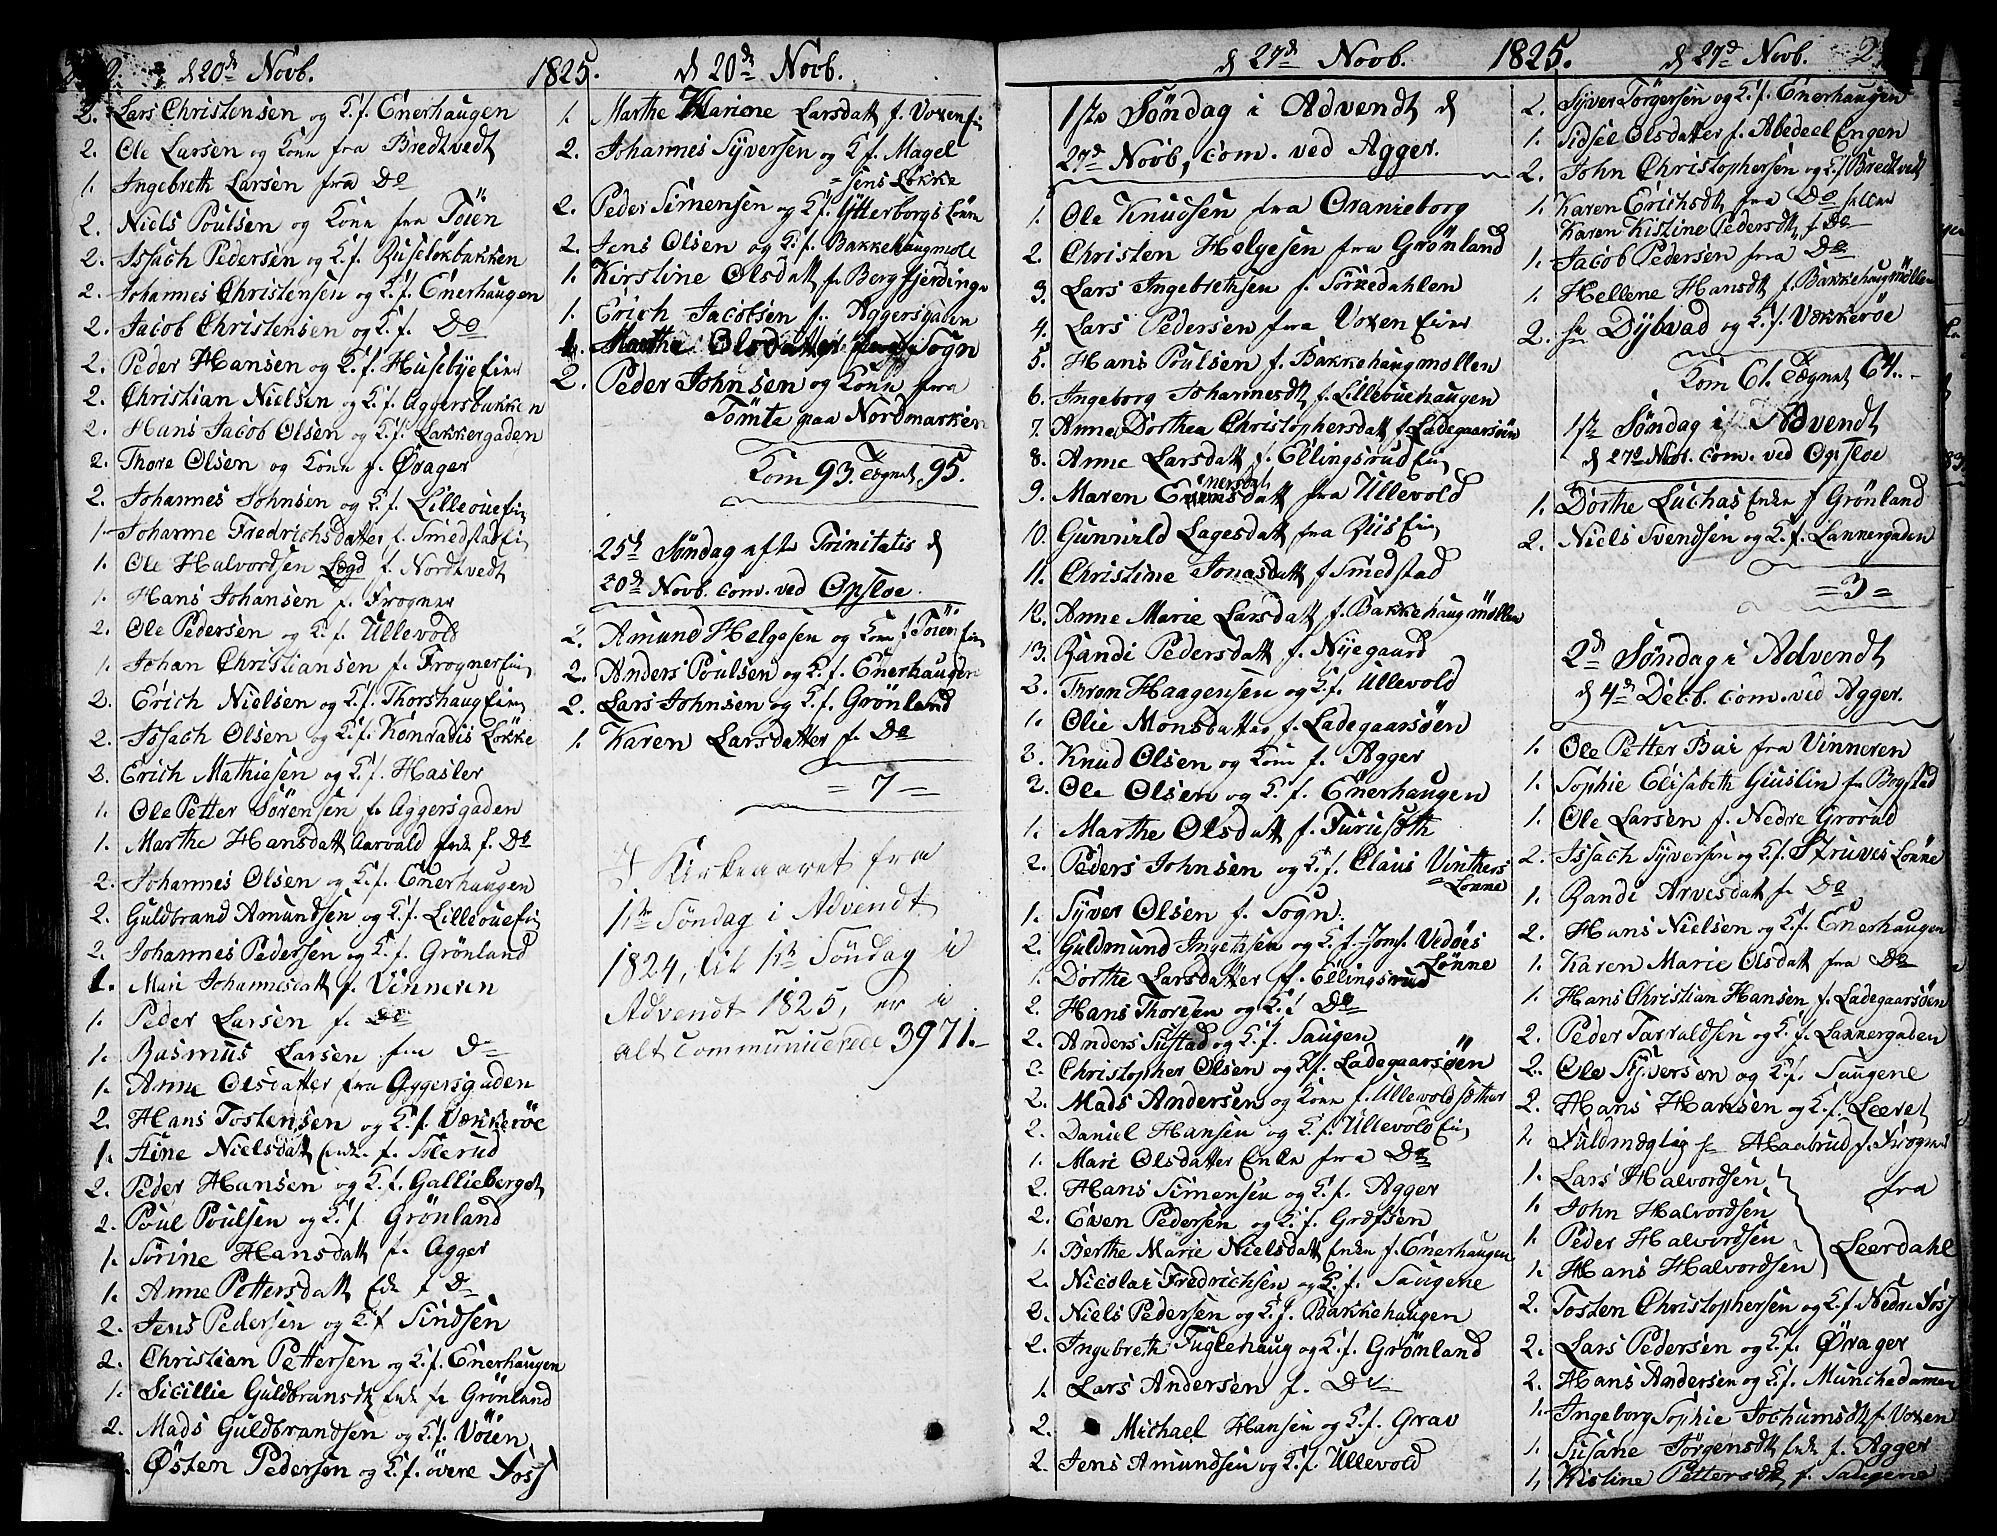 d 20de Novb.
1825.
2. Lars Christensen og K. f. Enerhaugen
2. Ole Larsen og Konn fra Bredtvedt
1. Ingebreth Larsen fra Do
2. Niels Poulsen og Konn fra Töien
2. Issach Pedersen og K. f. Ruseløkbakken
2. Johannes Christensen og K. f. Enerhaugen
2. Jacob Christensen og K. f. Do
2. Peder Hansen og K. f. Husebye Eier
2. Christian Nielsen og K. f. Aggersbakken
2. Hans Jacob Olsen og K. f. Lakkergaden
2. Thore Olsen og Konn f. Ørager
2. Johannes Johnsen og K. f. Lilleoue Ei
1. Johanne Fredrichsdatter f. Smedstad Ei
1. Ole Halvordsen Løgd f. Nordtvedt
1. Hans Johansen f. Frogner
2. Ole Pedersen og K. f. Ullevold
1. Johan Christiansen f. Frogner Ei
2. Erich Nielsen og K. f. Thorshaug Eier
2. Issach Olsen og K. f. Konradis Løkke
2. Erich Mathiesen og K. f. Hasler
1. Ole Petter Sörensen f. Aggersgaden
1. Marthe Hansdatt Aarvald Enk f. Do
2. Johannes Olsen og K. f. Enerhaugen
2. Guldbrand Amundsen og K. f. Lilleoue Ei
2. Johannes Pedersen og K. f. Grönland
1. Mari Johannesdatt f. Vinneren
1. Peder Larsen f. Do
1. Rasmus Larsen fra Do
1. Anne Olsdatter fra Aggersgaden
2. Hans Tostensen og K. f. Vækkeröe
1. Stine Nielsdatt Enke f. Tolerud
2. Peder Hansen og K. f. Gallieberget
2. Poul Poulsen og K. f. Grönland
1. Sörine Hansdatt f. Agger
1. Anne Pettersdatt Enk f Do
2. Jens Pedersen og K. f Sindsen
2. Christian Pettersen og K. f. Enerhaugen
1. Sicillie Guldbransdt Enk fr Grönland
2. Mads Guldbrandsen og K. f. Vöien
Østen Pedersen og K. f. övere Foss
d 20de Novb.
1. Marthe Karione Larsdatt f. Voxen Ei
2. Johannes Syversen og K f. Magel
= sens Løkke
2. Peder Simensen og K. f. Ytterborgs Lönne
2. Jens Olsen og K. f. Bakkehaugmöle
1. Kirstine Olsdatt f. Bergfjerdinge
1. Erich Jacobsen f. Aggersgaden
1. Marthe Olsdatter fra Sogn
2. Peder Johnsen og Konn fra
Tömte paa Nordmarken
Kom 93. Tegnet 95.
25de Søndag efter Trinitatis d
20de Novb. com. ved Opsloe.
2. Amund Helgesen og Kone f Töien Ei
2. Anders Poulsen og K. f. Enerhaugen
2. Lars Johnsen og K. f. Grönland
1. Karen Larsdatter f. Do
= 7 =
I Kirkeaaret fra
1ste Söndag i Advendt
1824, til 1ste Söndag i
Advendt 1825, er i
alt communicerede 3971.
d 27de Novb.
1825.
1ste Søndag i Advendt d
27de Novb, com. ved Agger.
1. Ole Knudsen fra Oranieborg
2. Christen Helgesen fra Grönland
3. Lars Ingebrethsen f. Sörkedahlen
4. Lars Pedersen fra Voxen Eier
5. Hans Poulsen f. Bakkehaugmøllen
6. Ingeborg Johannesdt f. Lilleouehaugen
7. Anne Dorthea Christophersdatt f. Ladegaarsöen
8. Anne Larsdatt f. Ellingsrud Ei
9. Maren Enersdatt fra Ullevold
10. Gunnild Lagesdatt fra Riis Ei
11. Christine Jonasdatt f Smedstad
12. Anne Marie Larsdatt f. Bakkehaugmøllen
13. Randi Pedersdatt f. Nyegaard
2. Thron Haagensen og K. f. Ullevold
1. Olie Monsdatter f. Ladegaarsøen
2. Knud Olsen og Kone f. Agger
2. Ole Olsen og K. f. Enerhaugen
1. Marthe Olsdatt f. Furusöth
2. Peders Johnsen og K. f. Claus Vinthers
= Lönne
1. Syver Olsen f. Sogn.
2. Guldmund Ingebsen og K. f. Jomf. Vedöes
Lönne
1. Dorthe Larsdatter f. Ellingsrud
2. Hans Thoresen og K. f Do
2. Anders Sustad og K. f. Saugen
2. Christopher Olsen og K. f. Ladegaarsöen
2. Mads Andersen og Konn f. Ullevoldsæther
2. Daniel Hansen og K. f. Ullevold Ei
1. Mari Olsdatter Enke fra Do
2. Hans Simensen og K. f. Agger
2. Even Pedersen og K. f. Grefsen
1. Berthe Marie Nielsdatt Enke f. Enerhaugen
2. Nicolai Fredrichsen og K. f. Saugene
2. Niels Pedersen og K. f. Bakkehaugen
2. Ingebreth Fuglehaug og K. f. Grönland
1. Lars Andersen f. Do
2. Michael Hansen og K. f. Grav
2. Jens Amundsen og K. f. Ullevold
d 27de Novb.
2. Syver Törgersen og K. f. Enerhaugen
1. Sidsel Olsdatter f. Abedeel Engen
2. John Christophersen og K. f. Bredtvedt
1. Karen Erichsdt fra Do
Karen Kistine Pedersdt f. Do
1. Jacob Pedersen fra Do
1. Hellene Hansdt f. Bakkehaugmöllen
2. hr Dybvad og K. f. Vækkeröe
Kom 61. Tegnet 64.
1ste Søndag i Advendt
d 27de Novb. com. ved Opsloe
1. Dorthe Luchas Enke f Grönland
2. Niels Svendsen og K. f. Lannergaden
= 3 =
2de Søndag i Advendt
d 4de Decb. com. ved Agger.
1. Ole Petter Bai fra Vinneren
1. Sophie Elisabeth Giuslin fr Bogstad
1. Ole Larsen f. Nedre Grorud
2. Issach Syversen og K. f. Struves Lönne
1. Randi Arvesdatt f. Do
2. Hans Nielsen og K. f. Enerhaugen
1. Karen Marie Olsdatt fra Do
1. Hans Christian Hansen f. Ladegaarsöen
2. Peder Tarraldsen og K. f. Lannergaden
2. Ole Syversen og K. f. Saugene
2. Hans Hansen og K. f. Leeret
1. Fuldmægtig hr Haabrud f. Frogner
1. Lars Halvordsen
1. John Halvordsen
1. Peder Halvordsen
1. Hans Halvordsen
fra
Leerdahl
2. Tosten Christophersen og K. f. Nedre Foss
2. Lars Pedersen og K. f. Ørager
2. Hans Andersen og K. f. Munchedamen
1. Ingeborg Sophie Jochumsdt f. Voxen
1. Susane Jørgensdt Enk f. Agger
1. Kistine Pettersdt f. Saugene